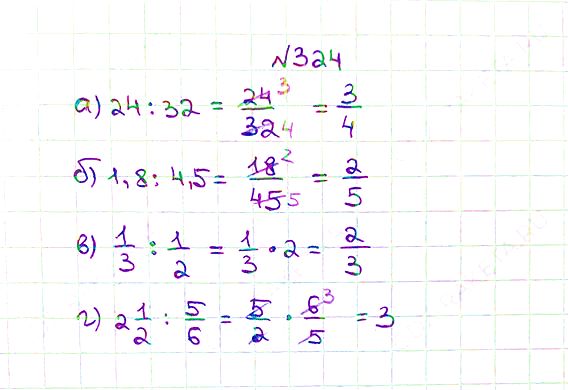 №324
а) 24 : 32 = 24³/32₄ = 3/4
б) 1,8 : 4,5 = 18²/45₅ = 2/5
в) 1/3 : 1/2 = 1/3 · 2 = 2/3
г) 2 1/2 : 5/6 = 5/2 · 6³/5 = 3